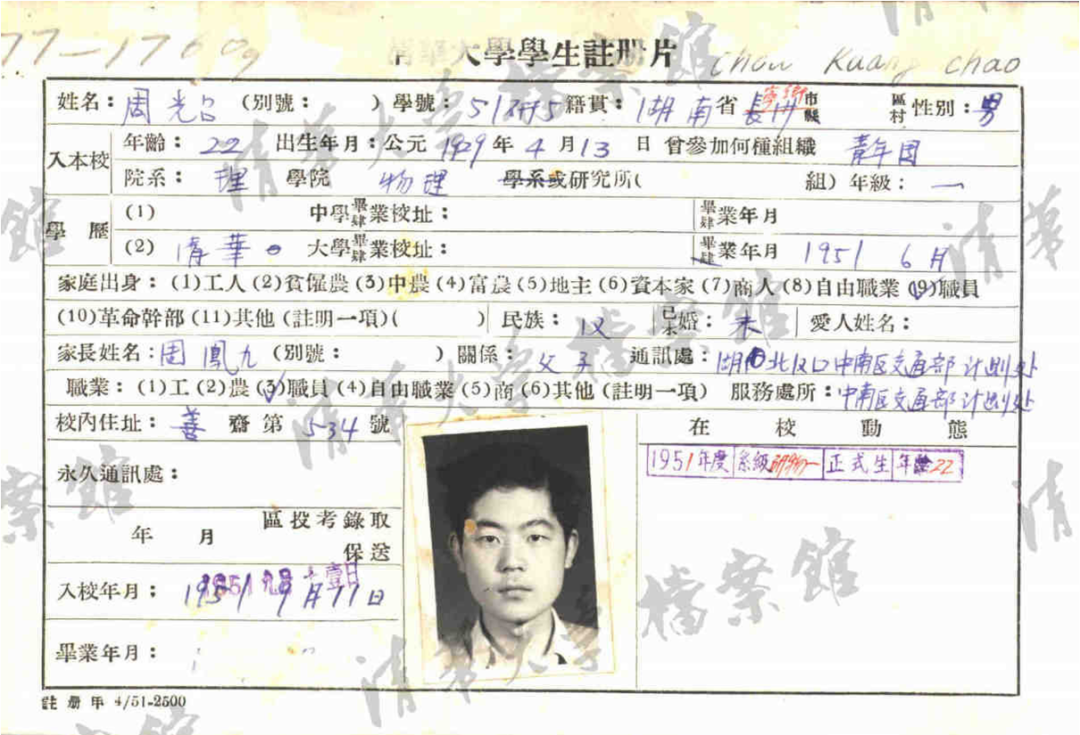 77-1760g
清華大學學生註册片 Chow Kuang chao
姓名：周光召 (別號： ) 學號：籍貫：湖南省長沙寧鄉市縣 區村 性別：男
入本校 年齡：22 出生年月：公元1929年4月13日 曾參加何種組織 青年団
院系：理學院 物理 學系或研究所( 組) 年級：一
學歷 (1) 中學畢肄業校址： 畢肄業年月
(2) 清華 大學畢肄業校址： 畢肄業年月 1951 6月
家庭出身：(1)工人(2)貧僱農(3)中農(4)富農(5)地主(6)資本家(7)商人(8)自由職業(9)職員
(10)革命幹部(11)其他(註明一項)( ) 民族：汉 已未婚：未 愛人姓名：
家長姓名：周鳳九 (別號： ) 關係：父子 通訊處：湖北汉口中南区交通部计划处
職業：(1)工(2)農(3)職員(4)自由職業(5)商(6)其他(註明一項) 服務處所：中南区交通部计划处
校內住址：善齋第534號 在校動態
1951年度 系級研物一 正式生 年齡22
永久通訊處：
年 月 區投考錄取
保送
入校年月：1951 9月11日
畢業年月：
註册 4/51-2500
清华大学檔案館